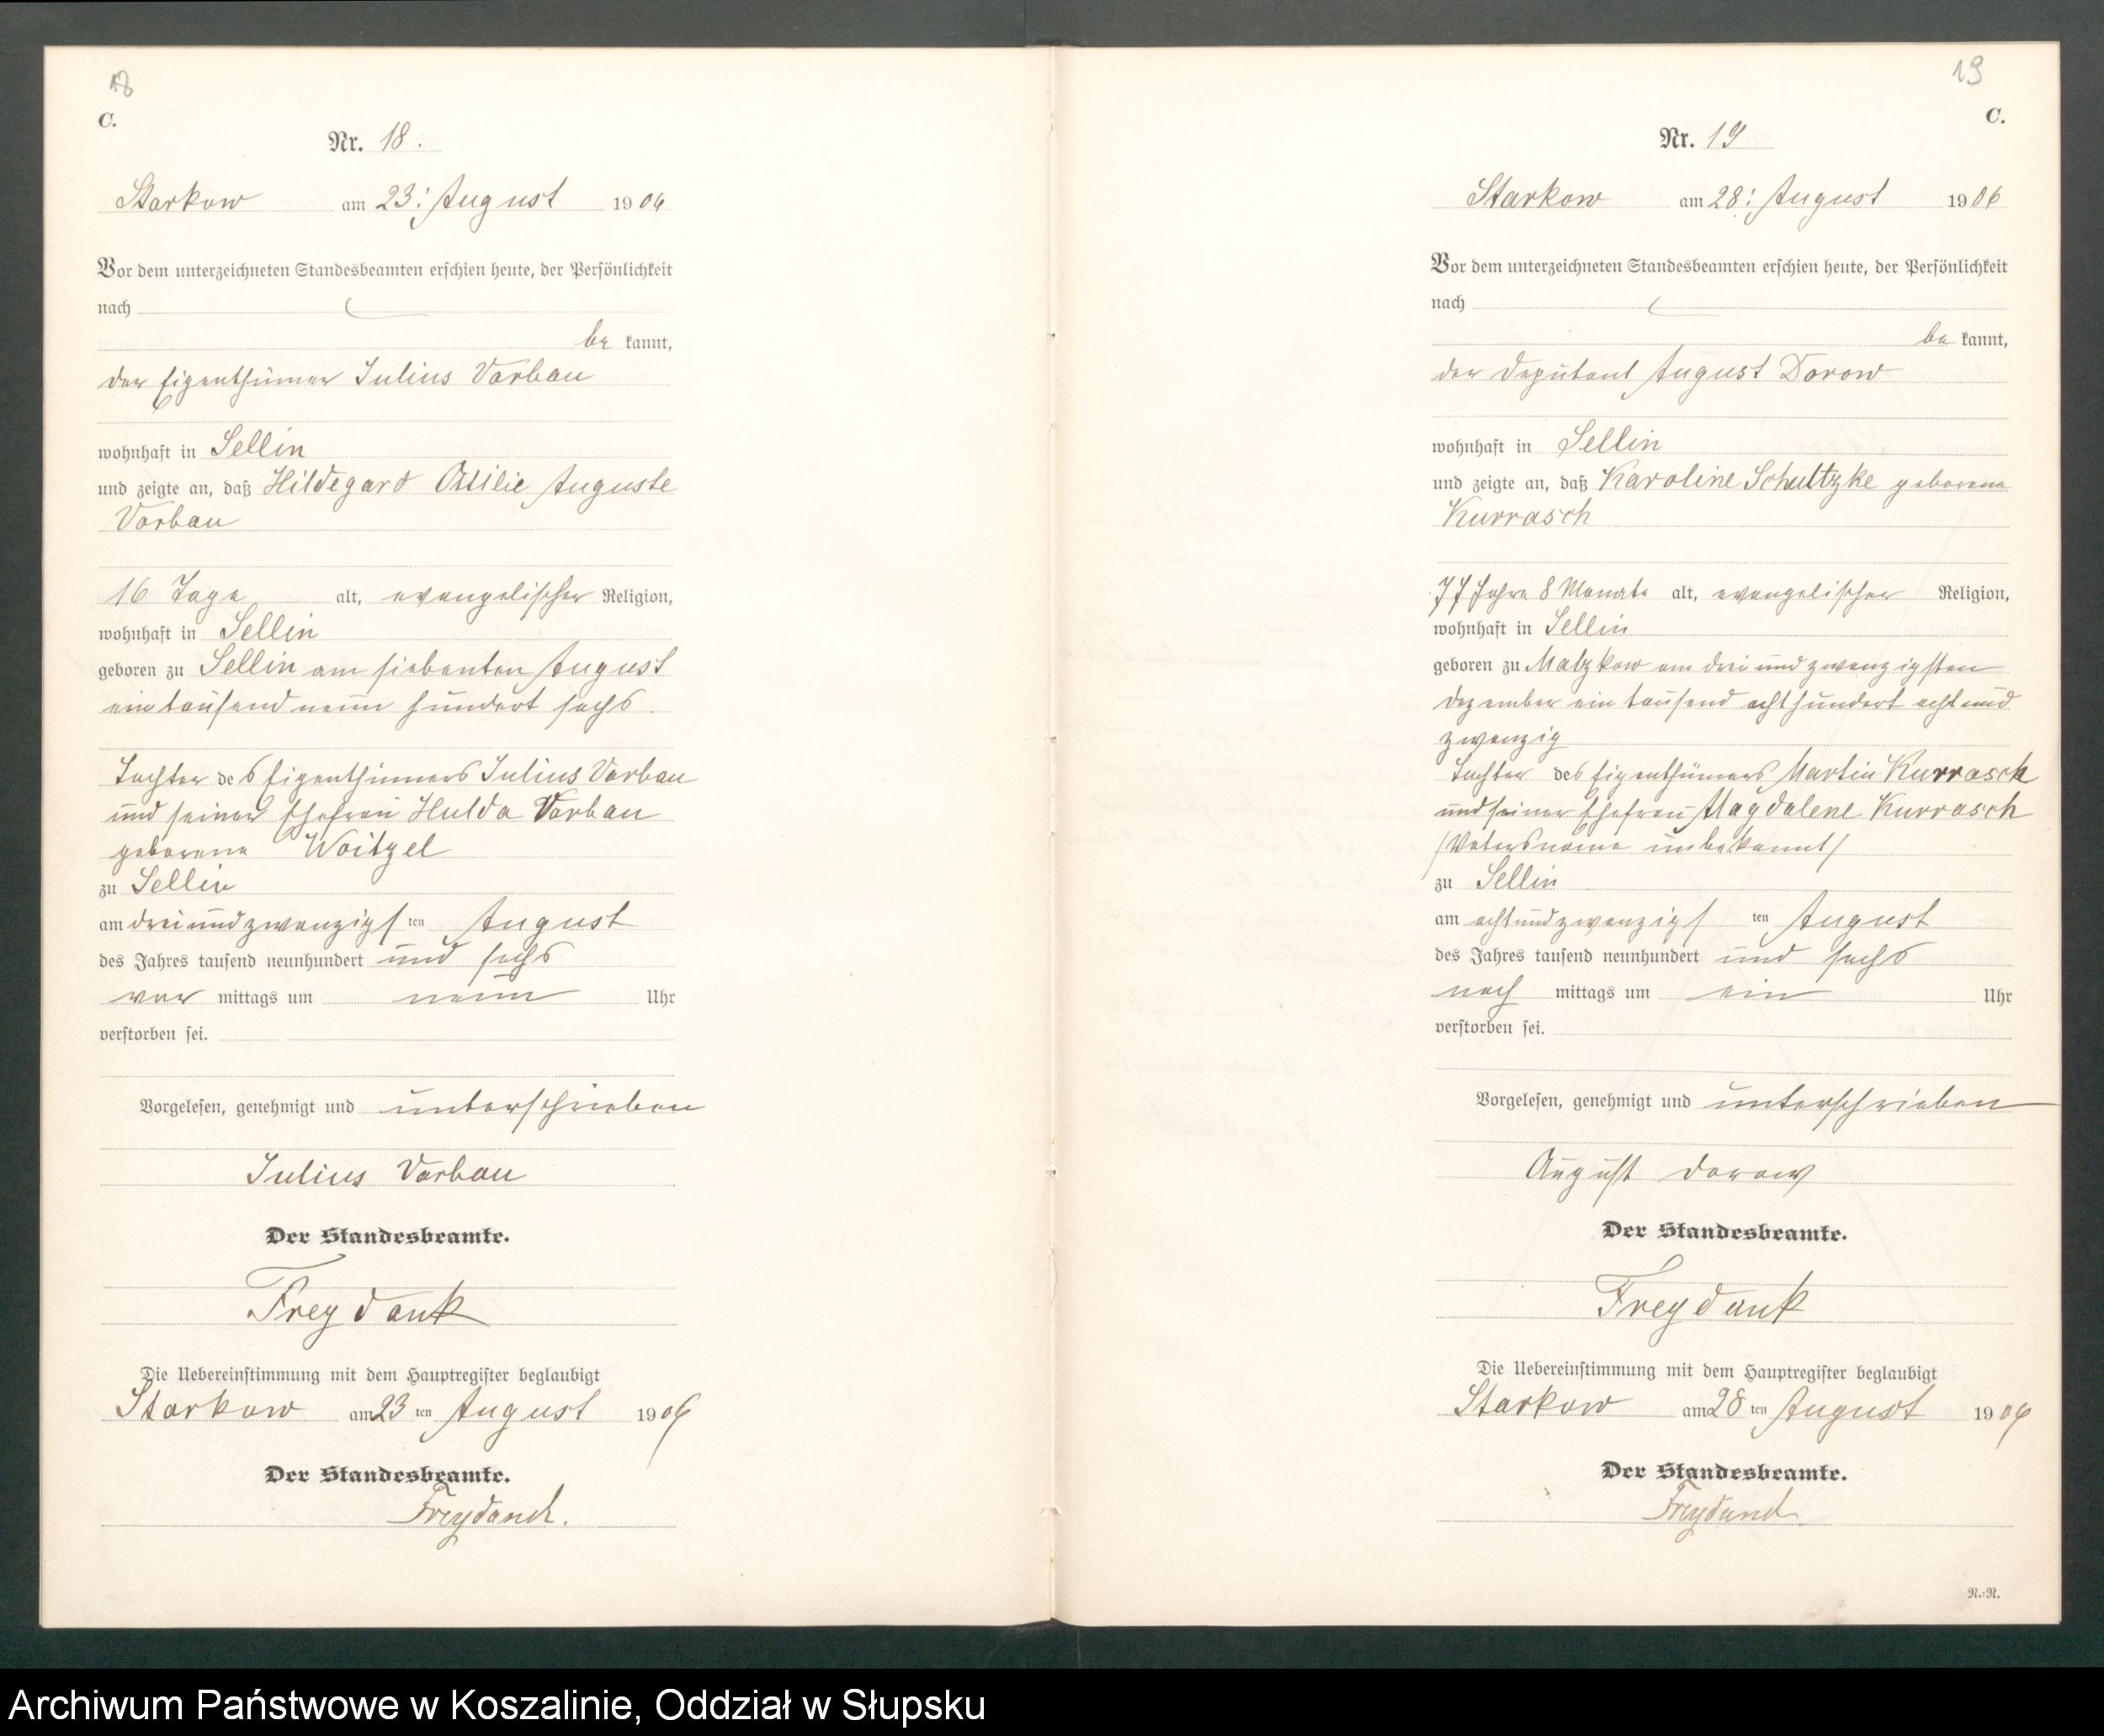 18
C.
Nr. 18.
Starkow am 23: August 1906
Vor dem unterzeichneten Standesbeamten erschien heute, der Persönlichkeit
nach
be kannt,
der Eigenthümer Julius Vorbau
wohnhaft in Sellin
und zeigte an, daß Hildegard Ottilie Auguste
Vorbau
16 Tage alt, evangelischer Religion,
wohnhaft in Sellin
geboren zu Sellin am siebenten August
eintausend neun hundert sechs
Tochter des Eigenthümers Julius Vorbau
und seiner Ehefrau Hulda Vorbau
geborene Woitzel
zu Sellin
am dreiundzwanzigsten August
des Jahres tausend neunhundert und sechs
vor mittags um neun Uhr
verstorben sei.
Vorgelesen, genehmigt und unterschrieben
Julius Vorbau
Der Standesbeamte.
Freydank
Die Uebereinstimmung mit dem Hauptregister beglaubigt
Starkow am 23 ten August 1906
Der Standesbeamte.
Freydank.
19
C.
Nr. 19
Starkow am 28: August 1906
Vor dem unterzeichneten Standesbeamten erschien heute, der Persönlichkeit
nach
be kannt,
der Deputant August Dorow
wohnhaft in Sellin
und zeigte an, daß Karoline Schultzke geborene
Kurrasch
77 Jahre 8 Monate alt, evangelischer Religion,
wohnhaft in Sellin
geboren zu Matzkow am dreiundzwanzigsten
Dezember ein tausend acht hundert acht und
zwanzig
Tochter des Eigenthümers Martin Kurrasch
und seiner Ehefrau Magdalene Kurrasch
/Vatersname unbekannt/
zu Sellin
am achtundzwanzigsten August
des Jahres tausend neunhundert und sechs
nach mittags um ein Uhr
verstorben sei.
Vorgelesen, genehmigt und unterschrieben
August Dorow
Der Standesbeamte.
Freydank
Die Uebereinstimmung mit dem Hauptregister beglaubigt
Starkow am 28 ten August 1906
Der Standesbeamte.
Freydank.
N.-N.
Archiwum Państwowe w Koszalinie, Oddział w Słupsku